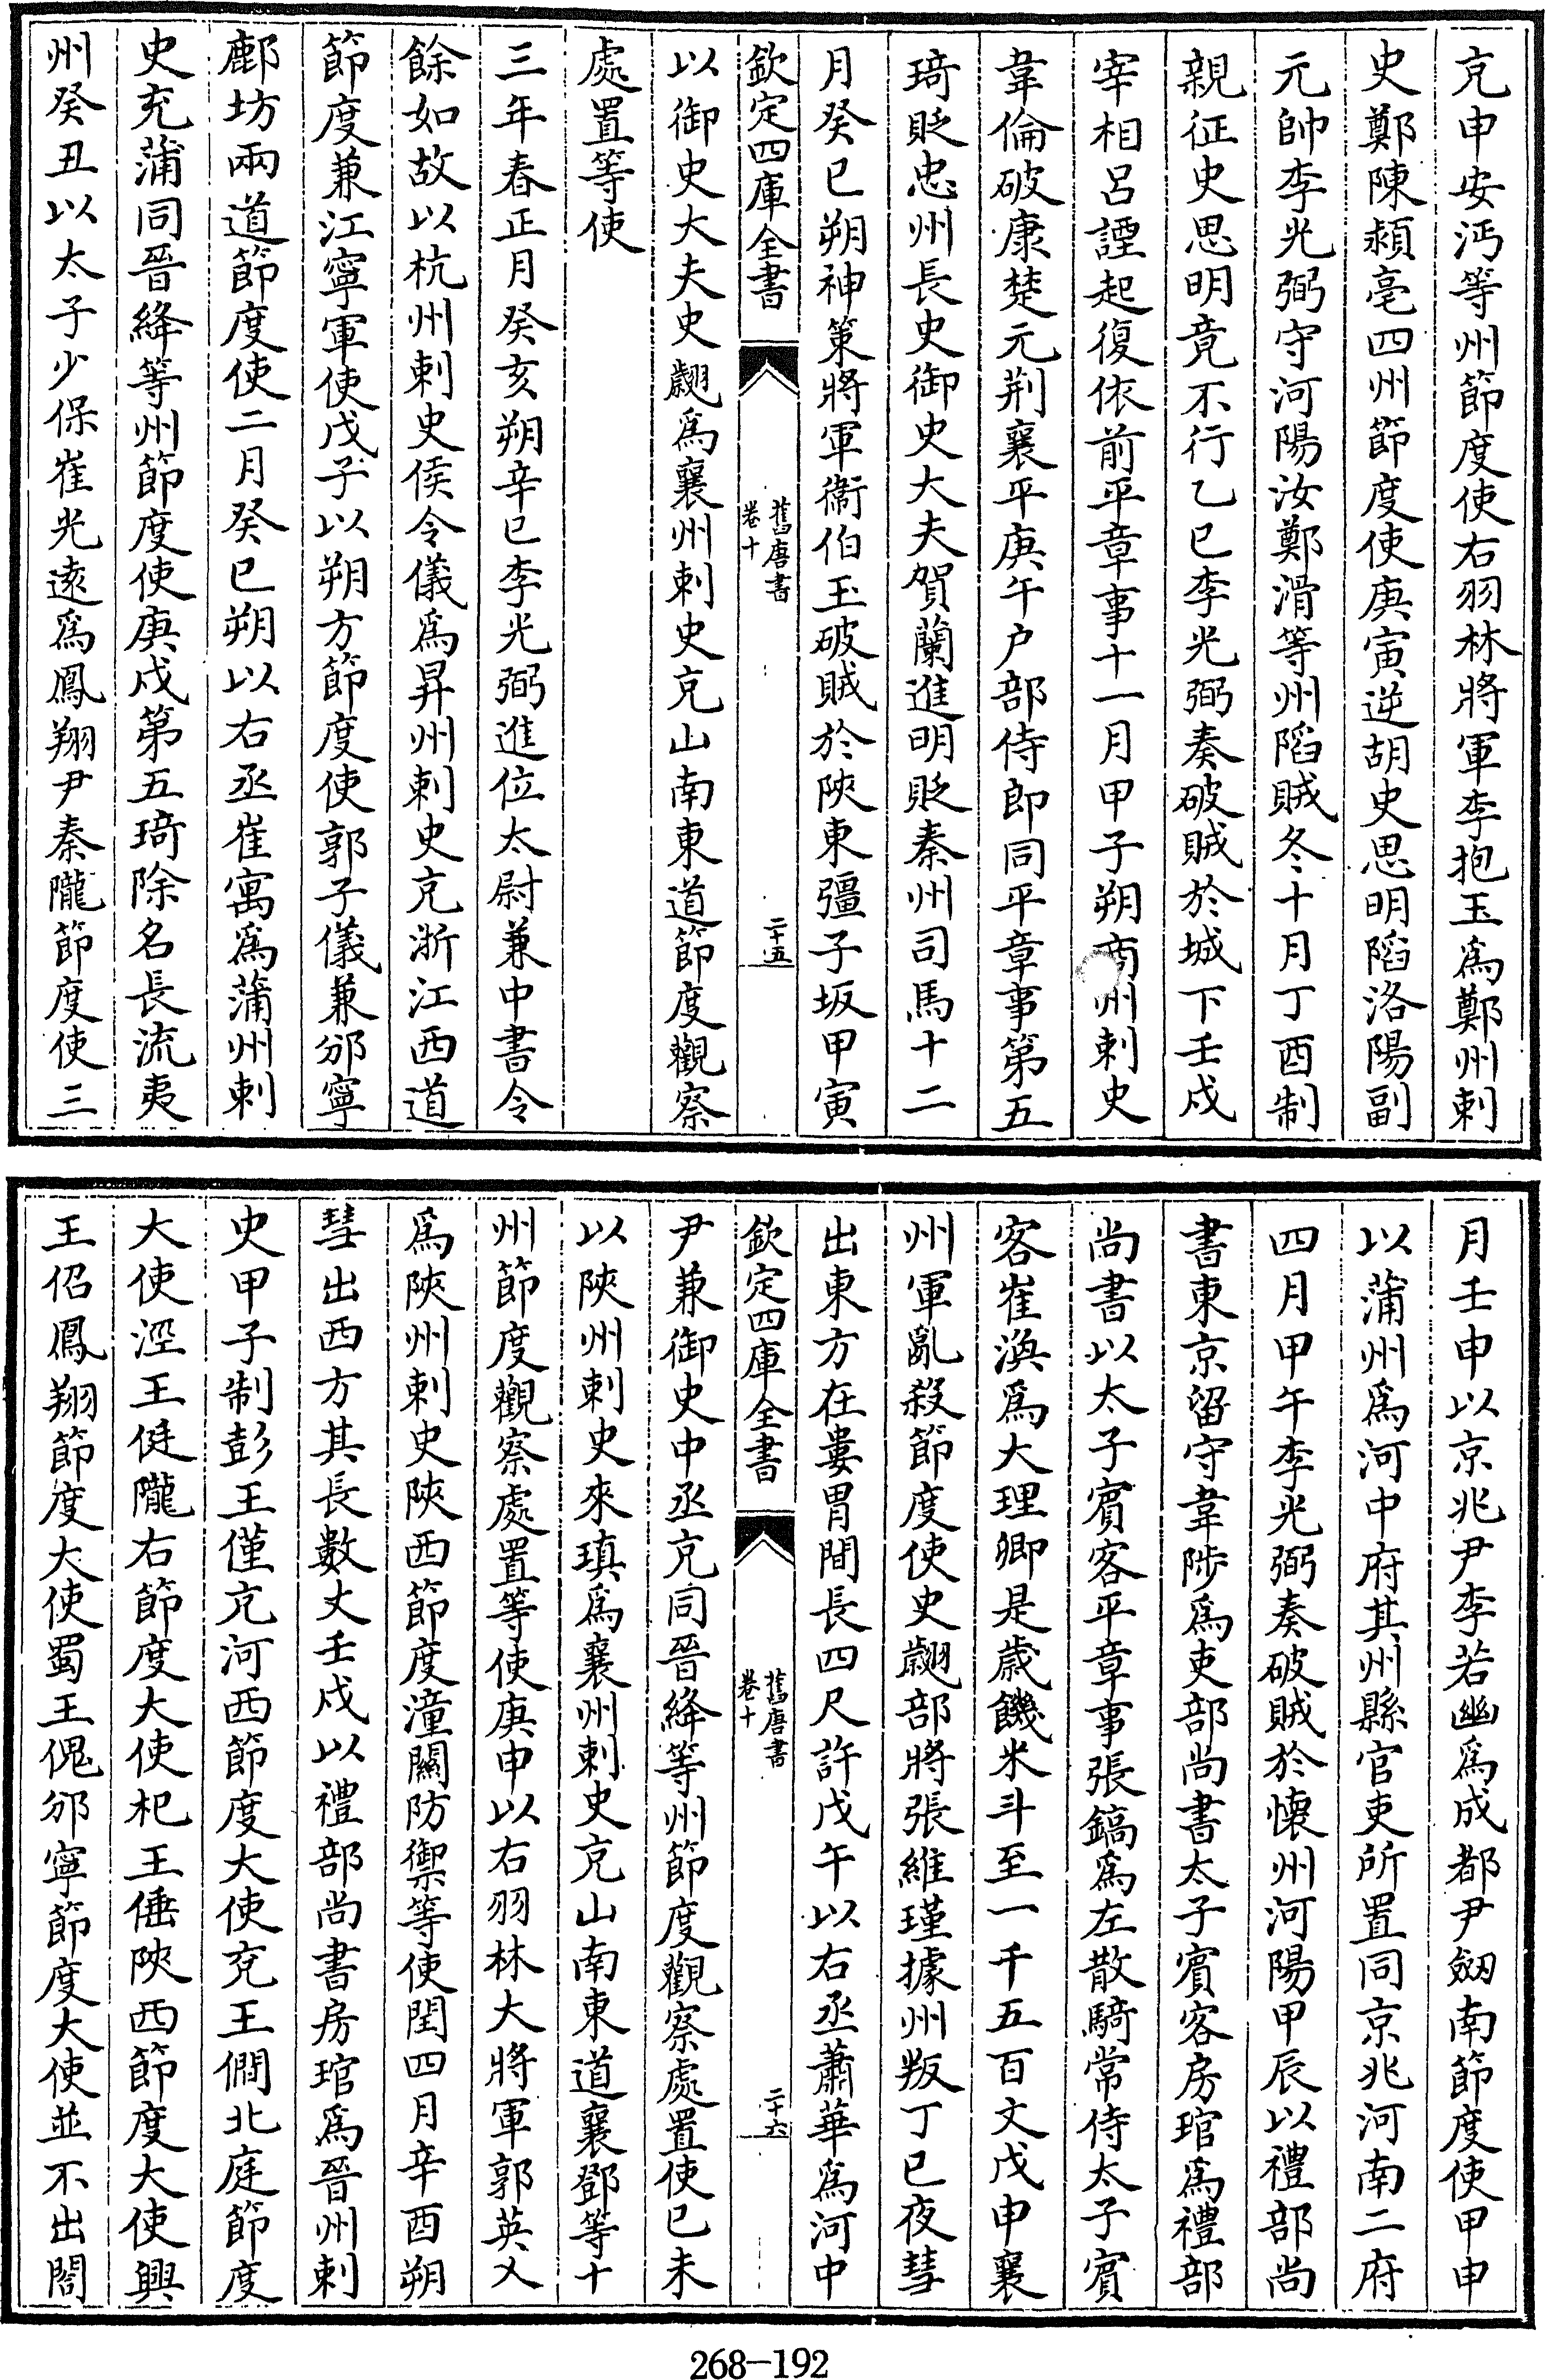 充申安沔等州節度使右羽林將軍李抱玉爲鄭州刺
史鄭陳潁亳四州節度使庚寅逆胡史思明陷洛陽副
元帥李光弼守河陽汝鄭滑等州陷賊冬十月丁酉制
親征史思明竟不行乙巳李光弼奏破賊於城下壬戌
宰相呂諲起復依前平章事十一月甲子朔商州刺史
韋倫破康楚元荆襄平庚午户部侍郎同平章事第五
琦貶忠州長史御史大夫賀蘭進明貶秦州司馬十二
月癸巳朔神策將軍衞伯玉破賊於陝東彊子坂甲寅
欽定四庫全書
舊唐書
卷十
二十五
以御史大夫史翽爲襄州刺史充山南東道節度觀察
處置等使
三年春正月癸亥朔辛巳李光弼進位太尉兼中書令
餘如故以杭州刺史侯令儀爲昇州刺史充浙江西道
節度兼江寧軍使戊子以朔方節度使郭子儀兼邠寧
鄜坊兩道節度使二月癸巳朔以右丞崔寓爲蒲州刺
史充蒲同晉絳等州節度使庚戌第五琦除名長流夷
州癸丑以太子少保崔光遠爲鳳翔尹秦隴節度使三
月壬申以京兆尹李若幽爲成都尹劔南節度使甲申
以蒲州爲河中府其州縣官吏所置同京兆河南二府
四月甲午李光弼奏破賊於懷州河陽甲辰以禮部尚
書東京留守韋陟爲吏部尚書太子賓客房琯爲禮部
尚書以太子賓客平章事張鎬爲左散騎常侍太子賓
客崔渙爲大理卿是歲饑米斗至一千五百文戊申襄
州軍亂殺節度使史翽部將張維瑾據州叛丁巳夜彗
出東方在婁胃間長四尺許戊午以右丞蕭華爲河中
欽定四庫全書
舊唐書
卷十
二十六
尹兼御史中丞充同晉絳等州節度觀察處置使己未
以陝州刺史來瑱爲襄州刺史充山南東道襄鄧等十
州節度觀察處置等使庚申以右羽林大將軍郭英乂
爲陝州刺史陝西節度潼關防禦等使閏四月辛酉朔
彗出西方其長數丈壬戌以禮部尚書房琯爲晉州刺
史甲子制彭王僅充河西節度大使兖王僩北庭節度
大使涇王侹隴右節度大使杞王倕陝西節度大使興
王佋鳳翔節度大使蜀王傀邠寧節度大使並不出閤
268-192